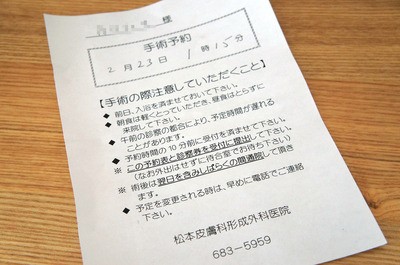 様
手術予約
2月23日 1時15分
【手術の際注意していただくこと】
◆ 前日、入浴を済ませておいて下さい。
◆ 朝食は軽くとっていただき、昼食はとらずに
来院して下さい。
◆ 午前の診察の都合により、予定時間が遅れる
ことがあります。
◆ 予約時間の10分前に受付を済ませて下さい。
※ この予約表と診察券を受付に提出して下さい。
(なお外出はせずに待合室でお待ち下さい)
※ 術後は翌日を含みしばらくの間通院して頂き
ます。
◆ 予定を変更される時は、早めに電話でご連絡
下さい。
松本皮膚科形成外科医院
683-5959